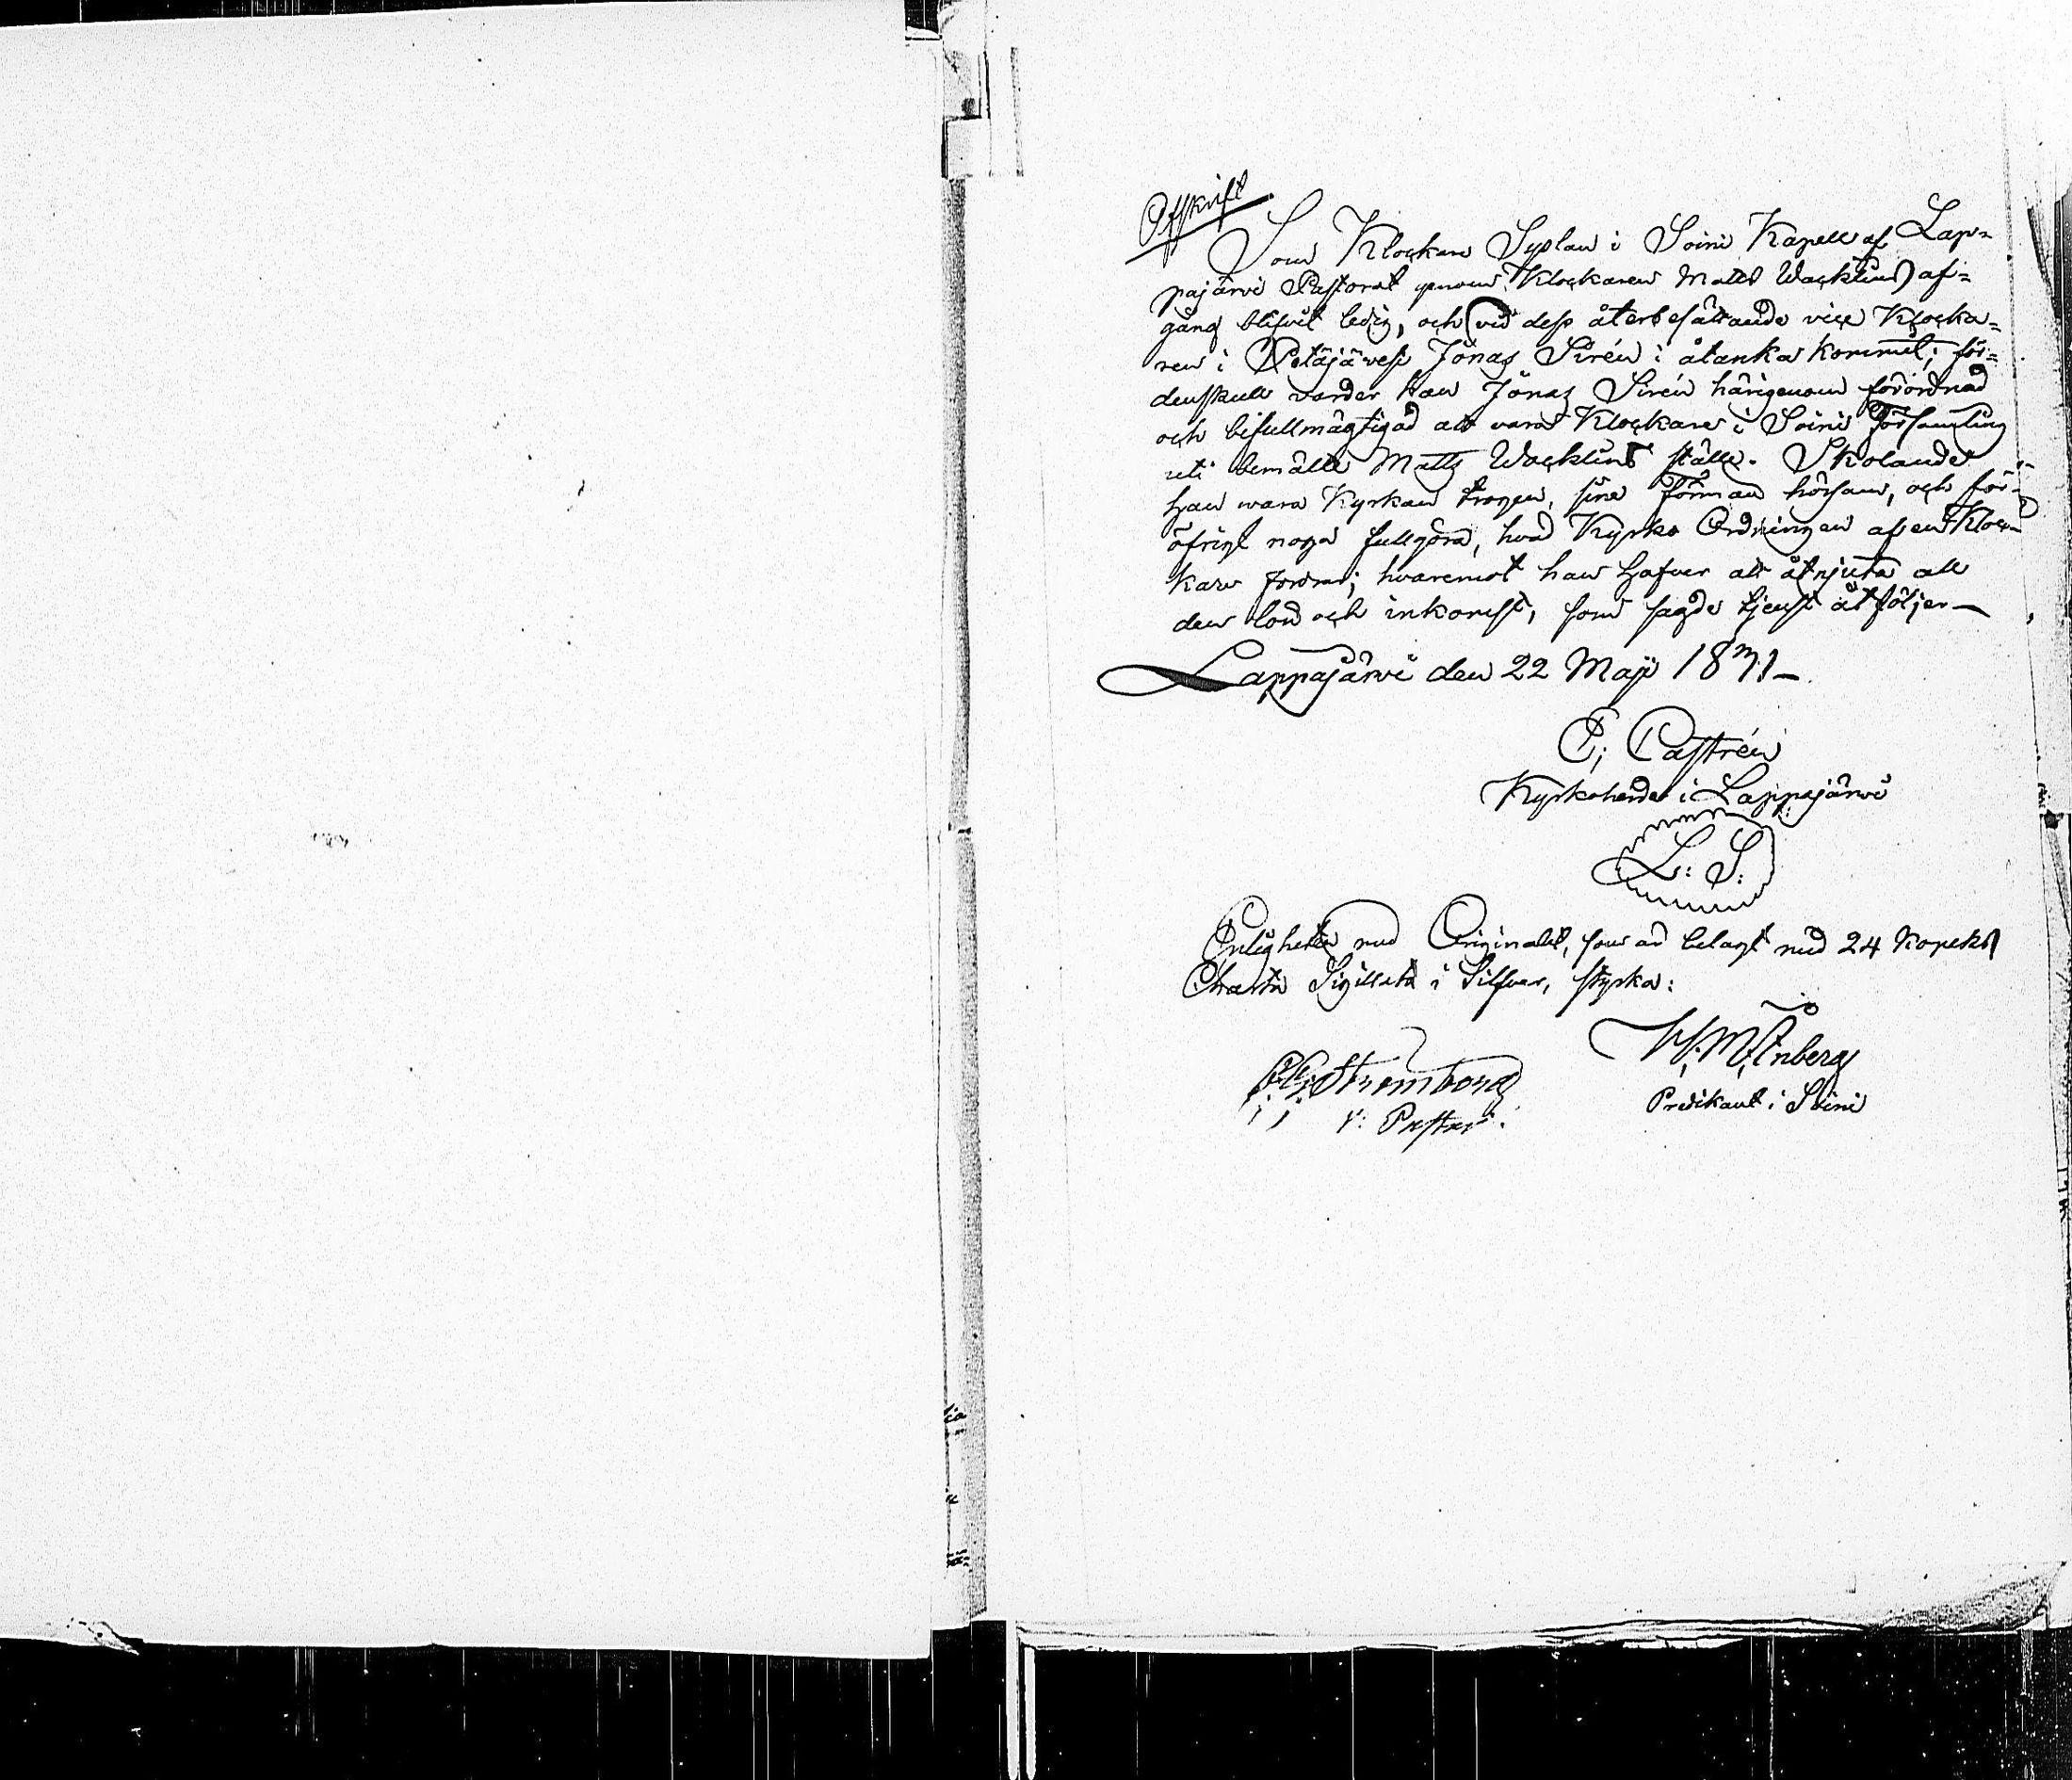 Afskrift
Som Klockare Syslan i Soini Kapell af Lap=
pajärvi Pastorat genom Klockaren Matts Wacklins af=
gång blifvit ledig, och vid dess återbesättande vice Klocka=
ren i Petäjävesi Jonas Sirén i åtanka kommit; för=
denskull varder han Jonas Sirén härigenom förordnad
och befullmägtigad att vara Klockare i Soini Församling
uti bemälte Matts Wacklins ställe. Skolandes
han wara Kyrkan trogen, sine Förmän hörsam, och för=
öfrigt noga fullgöra, hvad Kyrko Ordningen af en Kloc=
kare fordrar; hvaremot han hafver att åtnjuta all
den lön och inkomst, som sagde tjenst åtföljer—
Lappajärvi den 22 Maji 1831—
E; Castrén
Kyrkoherde i Lappajärvi
L: S:
Enligheten med Originalet, som är belagt med 24 Kopeks
Charta Sigillata i Silfver, styrka:
Strömborg
v: Pastor.
W. M. Ånberg
Predikant i Soini